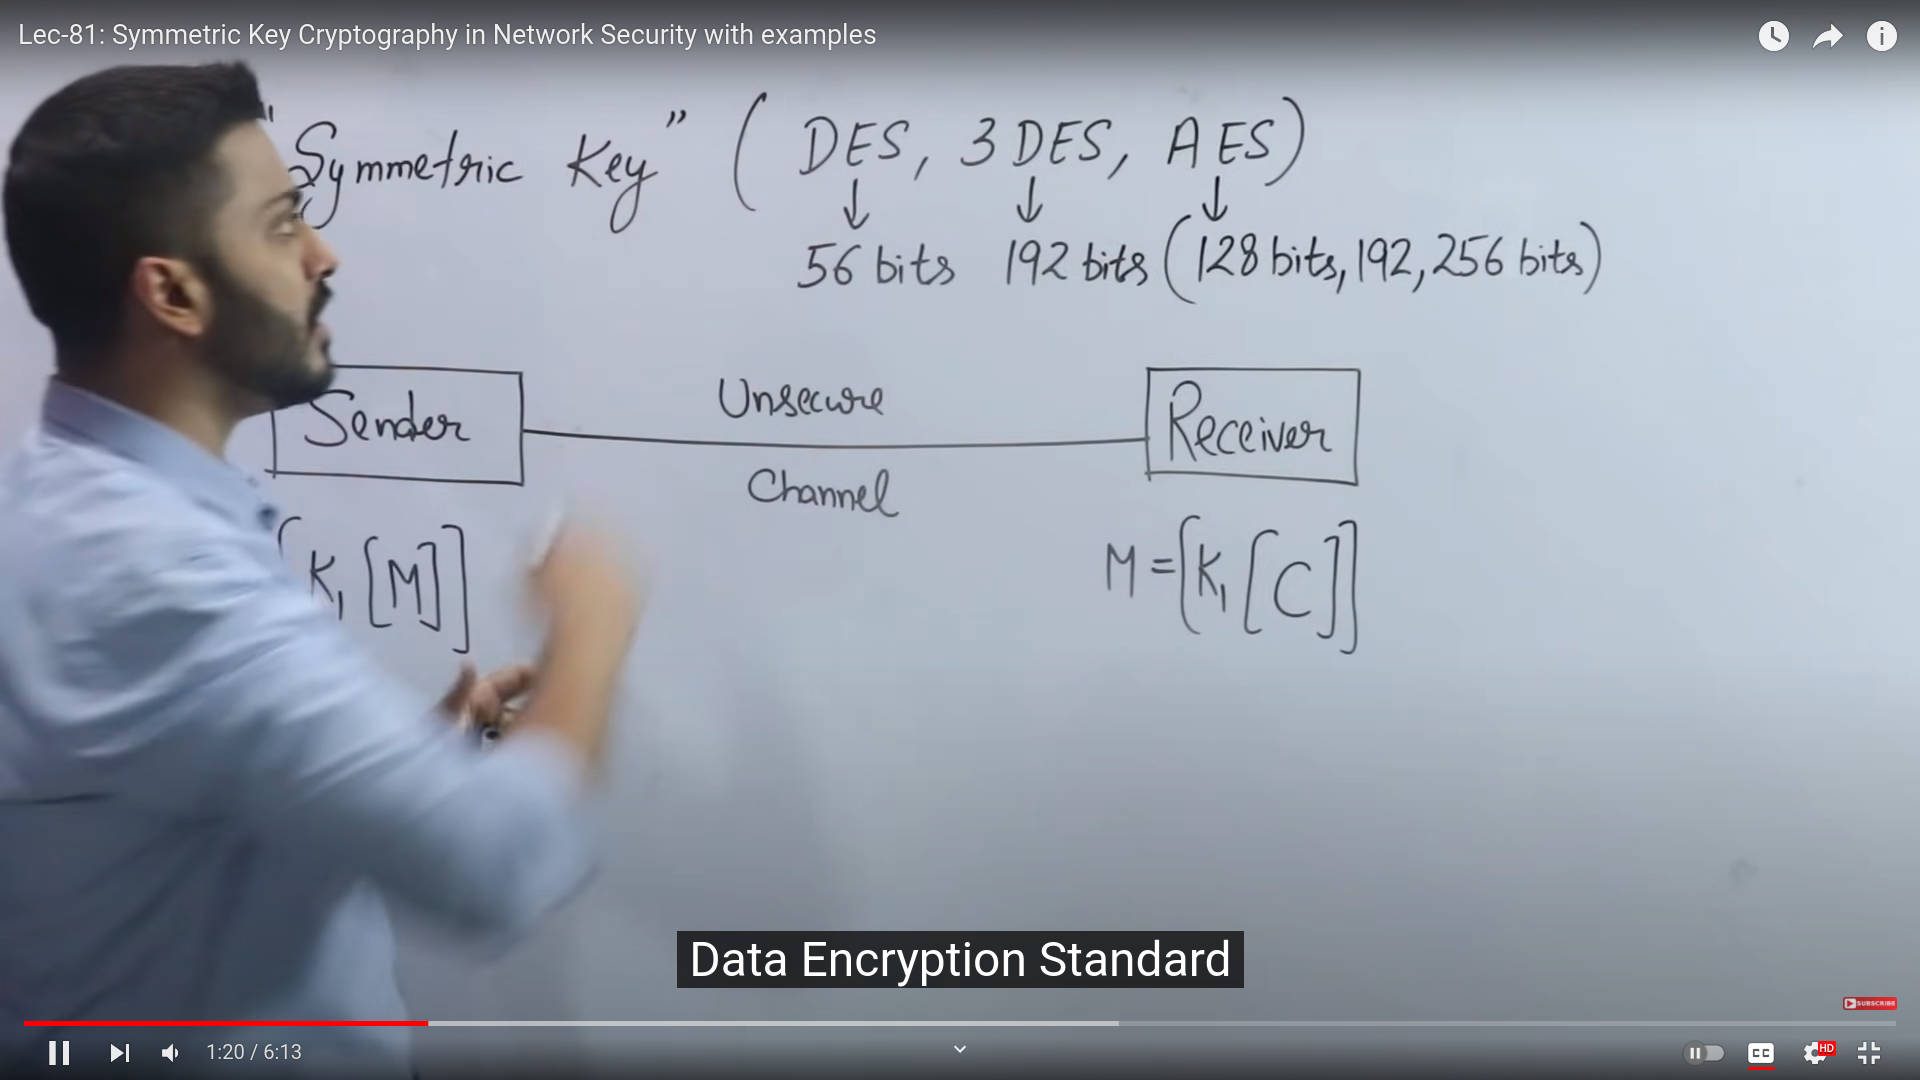 Lec-81: Symmetric Key Cryptography in Network Security with examples
"Symmetric Key" ( DES, 3DES, AES)
↓ ↓ ↓
56 bits 192 bits (128 bits, 192, 256 bits)
Sender Unsecure Receiver
Channel
[K₁ [M]] M = [K₁ [C]]
Data Encryption Standard
SUBSCRIBE
1:20 / 6:13 CC HD